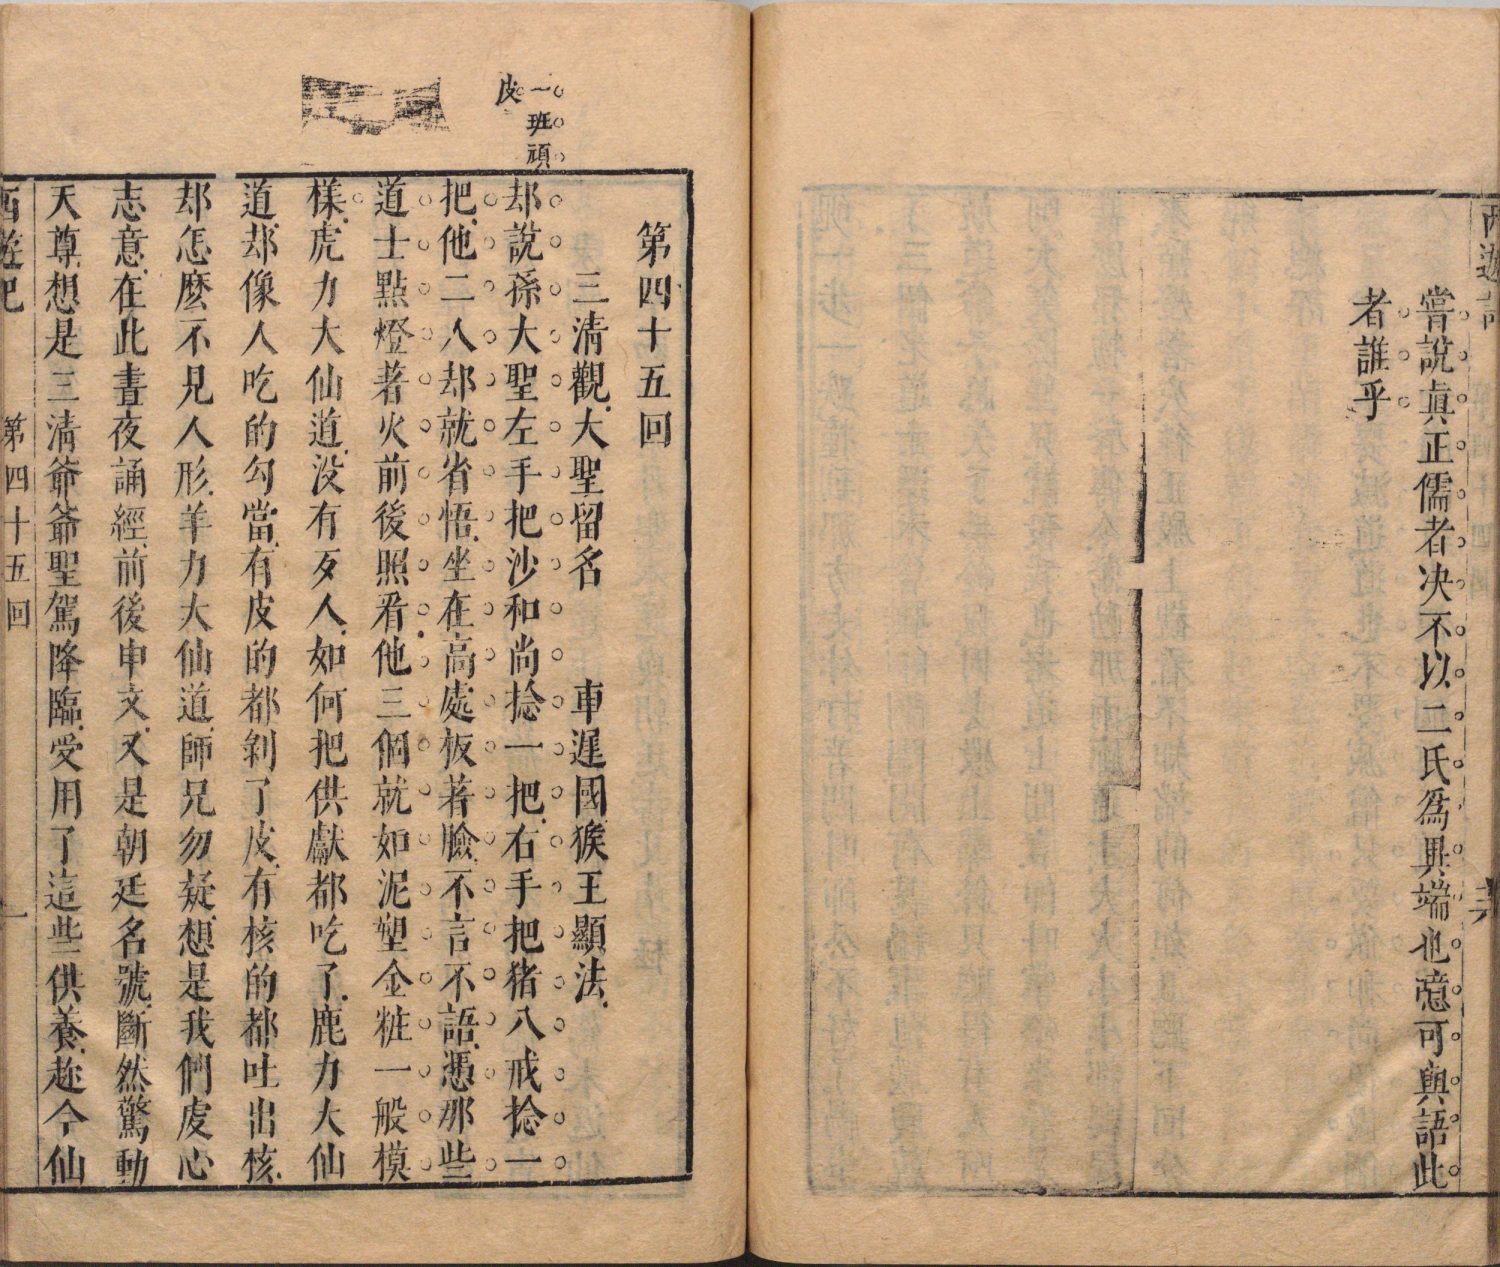 西遊記
嘗說眞正儒者决不以二氏爲異端也噫可與語此
者誰乎
一班頑
皮
第四十五回
三清觀大聖留名 車遲國猴王顯法
却說孫大聖左手把沙和尚捻一把右手把猪八戒捻一
把他二人却就省悟坐在高處板著臉不言不語憑那些
道士點燈著火前後照看他三個就如泥塑金粧一般模
樣虎力大仙道没有歹人如何把供獻都吃了鹿力大仙
道却像人吃的勾當有皮的都剝了皮有核的都吐出核
却怎麽不見人形羊力大仙道師兄勿疑想是我們虔心
志意在此晝夜誦經前後申文又是朝廷名號斷然驚動
天尊想是三清爺爺聖駕降臨受用了這些供養趂今仙
西遊記 第四十五回 一